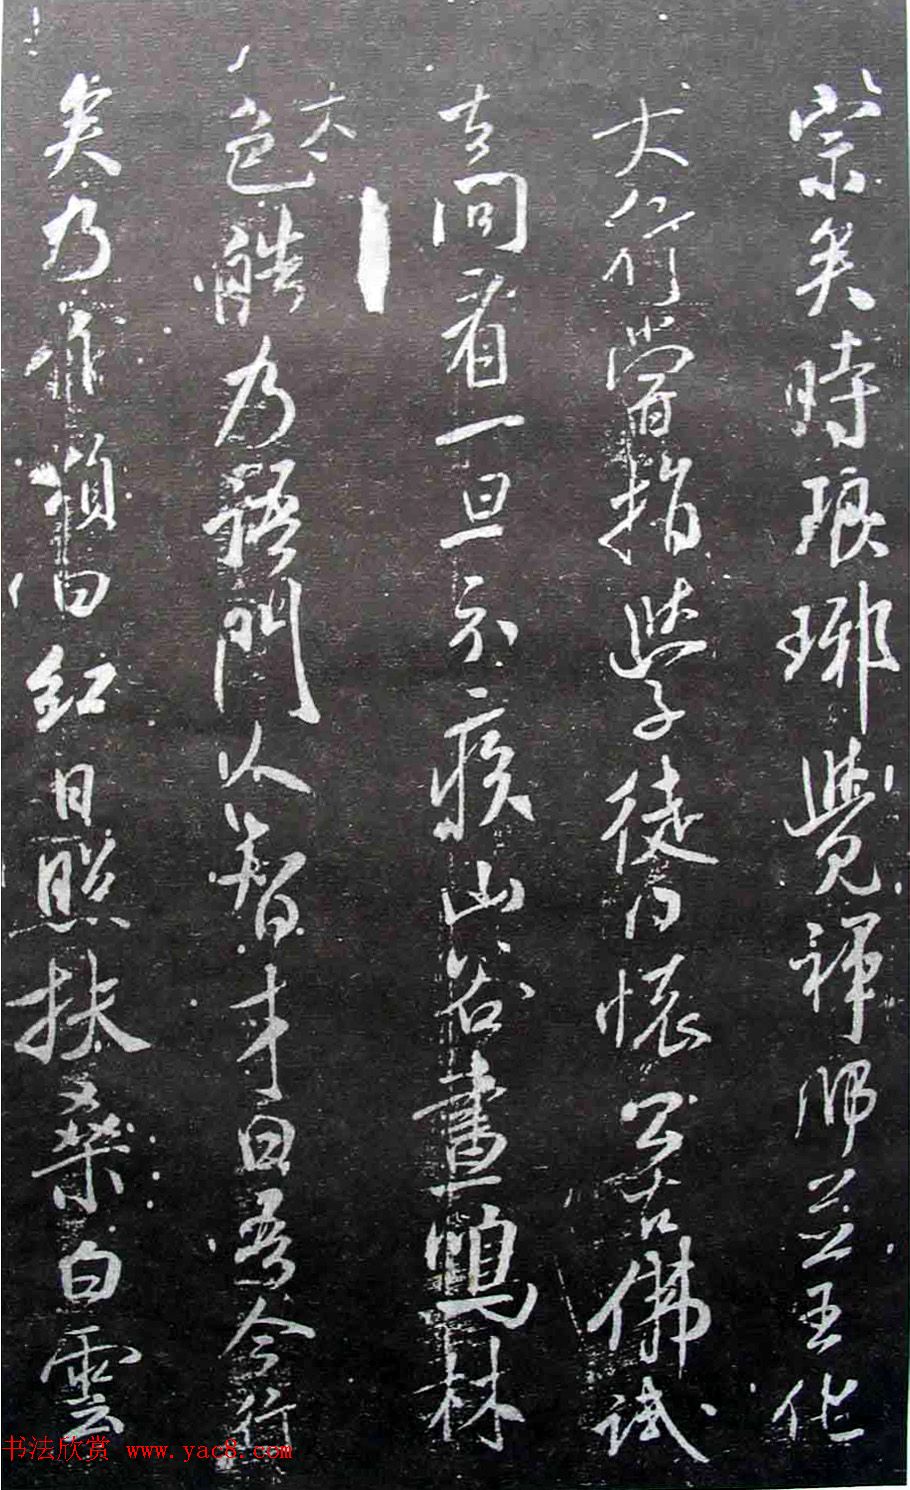 宗矣時琅琊覺禪師並王化
大行嘗指學徒曰懷公古佛試
去問看一旦示疾山谷晝鳴林
木色皓乃語門人智才曰吾今行
矣乃作頌曰紅日照扶桑白雲
书法欣赏 www.yac8.com